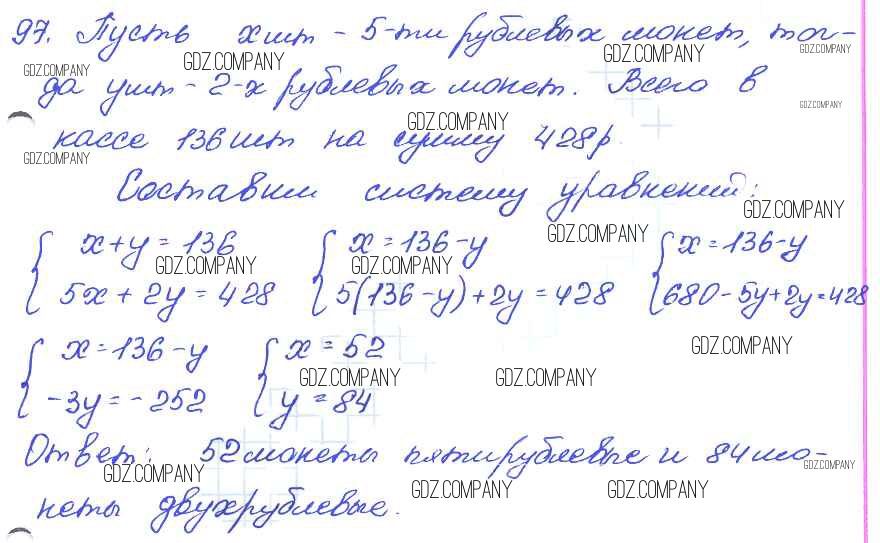 97. Пусть x шт - 5-ти рублевых монет, тог-
да y шт - 2-х рублевых монет. Всего в
кассе 136 шт на сумму 428 р.
Составим систему уравнений:
{ x+y=136 { x=136-y { x=136-y
{ 5x+2y=428 { 5(136-y)+2y=428 { 680-5y+2y=428
{ x=136-y { x=52
{ -3y=-252 { y=84
Ответ: 52 монеты пятирублевые и 84 мо-
неты двухрублевые.
GDZ.COMPANY GDZ.COMPANY GDZ.COMPANY
GDZ.COMPANY
GDZ.COMPANY GDZ.COMPANY
GDZ.COMPANY
GDZ.COMPANY
GDZ.COMPANY
GDZ.COMPANY GDZ.COMPANY
GDZ.COMPANY
GDZ.COMPANY GDZ.COMPANY
GDZ.COMPANY GDZ.COMPANY
GDZ.COMPANY GDZ.COMPANY